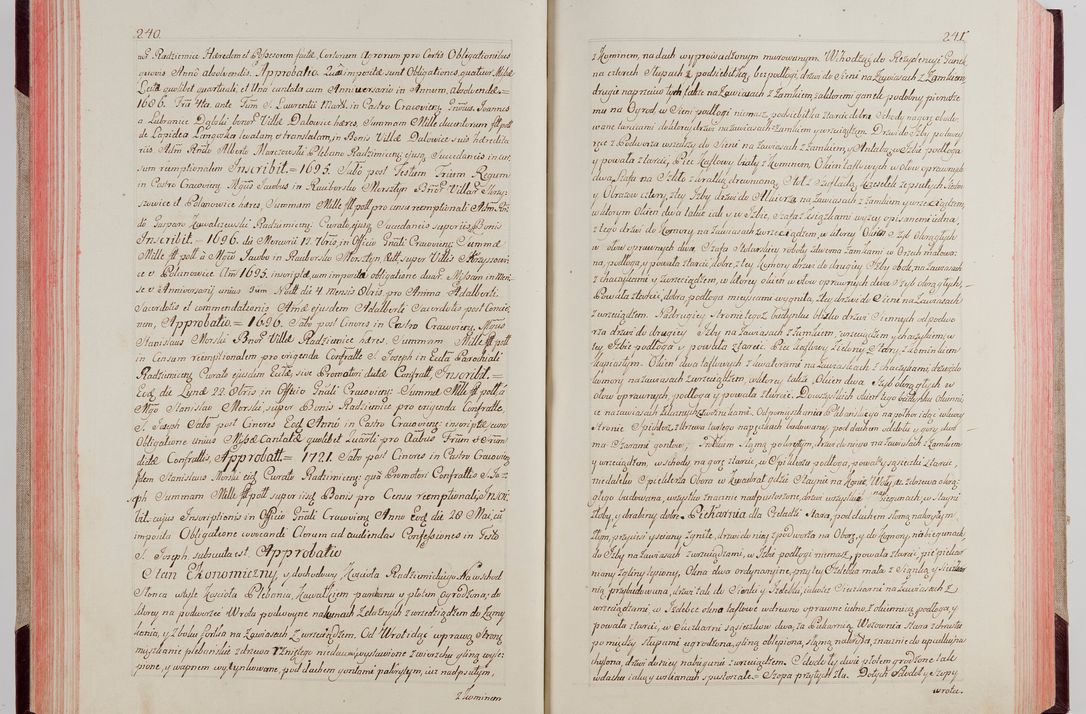 240.
Radziemice Hæredem et Possesorem factæ, Certorum Agrorum pro Certis Obligationibus
quovis Anno absolvendis. Approbatio. impositæ sunt Obligationes, quatuor
Lecta quolibet quartuali, et Una cantata cum Anniversario in Annum, absolvendæ =
1686. Fru 4ta ante Fum S. Laurentii Mart. in Castro Cracovien. Joannes
a Lubranic Dąbski bonor Villæ Dalowice hæres, Summam Mille
de Lapidea Langovska levatam et translatam, in Bonis Villæ Dalowice suis hæredita
riis Adm Rndo Alberto Marszewski Plebano Radzimicen ejusq Succedaneis in cen
sum reemptionalem Inscribit. = 1695. Sabo post Festum Trium Regum
in Castro Cracovien. Mgcus Jacobus in Raciborsko Morsztyn
szowice et Polanowice hæres, Summam Mille poll pro censu reemptionali Adm
do Gasparo Kowalczewski Radzimicen Curato, ejusq Succedaneis super iisq Bonis
Inscribit. = 1696. die Mercurii 17. 7bris, in Officio Gnali Cracovien Summæ
Mille poll a Mgco Jacobo in Raciborsko Morsztyn, super Villis Krzyszowi
ce et Polanowice Ao 1695. inscriptæ, cum imposita obligatione duar Missarum in Men
se et Anniversarij unius die 4 mensis Obris, pro Anima Adalberti
Sacerdotis et commendationis Animæ ejusdem Adalberti Sacerdotis post Concio
nem, Approbatio = 1696. Sabo post Cineres in Castro Cracovien, Mgcus
Stanislaus Morski Villæ Radziemice hæres, Summam Mille poll
in Censum reemptionalem pro erigenda Confratte S. Joseph in Ecclâ Parochiali
Radzimicen Curato ejusdem Ecclæ, sive Promotori dictæ Confratt, Inscribit. =
Eod. die Lunæ 22. Obris in Officio Gnali Cracovien Summæ Mille poll. à
Mgco Stanislao Morski, super Bonis Radziemice pro erigenda Confratte
S. Joseph Sabo post Cineres Eod Anno in Castro Cracovien inscriptæ cum
Obligatione unius Missæ Cantatæ quolibet Quartli pro
dictæ Confrattis, Approbatt = 1721. Sabo post Cineres in Castro Cracovien
Idem Stanislaus Morski eid Curato Radzimicen quâ Promotori Confrattis S. Jo=
seph Summam Mille poll super iisq Bonis pro Censu reemptionali, Inscri
bit. cujus Inscriptionis in Officio Gnali Cracovien Anno Eod die 28 Maii, cû
imposita Obligatione convocandi Clerum ad audiendas Confessiones in Festo
S. Joseph subsecuta est. Approbatio
Stan Ekonomiczny, y dochodowy Kościoła Radziemickiego. Na wschod
Słonca wbyłe Kościoła Plebania, kawałkiem parkanu y płotem ogrodzona; do
ktorey na podworze Wrota podwoyne na kunach żelaznych z wrzeciądzem do zamy
kania, y z boku fortka na zawiasach z wrzeciądzem. Od Wrot idąc w prawą stronę
mieszkanie plebanskie z drzewa rzniętego niedawno wystawione z wierzchu gliną wyle=
pione, y wapnem wytynkowane, pod dachem gontami pobitym, już nadpsutym,
z kominem
241.
z kominem, na dach wyprowadzonym murowanym. Wchodząc do Rezydencyi Ganek
na czterech Słupach z podsiebitką, bez podłogi, drzwi do Sieni na zawiasach z zamkiem,
drugie naprzeciw tych także na zawiasach z zamkiem, za ktoremi ganek podobny pierwsze
mu na Ogrod, w Sieni podłogi niemasz, podsiebitka z tarcic dobra. Schody na gorę obudo=
wane tarcicami do ktorey drzwi na zawiasach z zamkiem y wrzeciądzem. Drzwi do Izby po lewey
ręce z Podworza wszedszy do Sieni na zawiasach z zamkiem, y Antabą; w Izbie podłoga
y powała z tarcic, Piec kaflowy biały z kominem, Okien taflowych w ołow oprawnych
dwa, Szafa na Szkło z kratką drewnianą Stoł z szufladą, Krzesełek
y Obrazow cztery. Z tey Izby drzwi do Alkierza na zawiasach z zamkiem y wrzeciądzem,
w ktorym Okien dwa takie iak y w Izbie, Szafa z książkami wyżey opisanemi iedna,
z tego drzwi do komory, na zawiasach z wrzeciądzem, w ktorey Okien z szyb okrągłych
w ołow oprawnych dwa Szafa Stolarskiey roboty z dwoma zamkami w Orzech malowa:
na, podłoga, y powała z tarcic, dobre, z tey komory drzwi do drugiey Izby obok, na zawiasach
z haczykami y wrzeciądzem, w ktorey okien w ołow oprawnych dwa z szyb okrągłych,
Powała z tarcic, dobra, podłoga mieyscami wygniła, z tey drzwi do Sieni na zawiasach
z wrzeciądzem. Na drugiey Stronie tegoż budynku blisko drzwi Siennych od podwo
rza drzwi do drugiey Izby na zawiasach z zamkiem, wrzeciądzem, y haczykiem, w
tey Izbie podłoga y powała z tarcic. Piec kaflowy zielony Stary z kominkiem
kapiastym. Okien dwa taflowych z kwaterami na zawiaskach z haczykami, drzwi do
komory na zawiasach z wrzeciądzem, w ktorey także Okien dwa z szyb okrągłych w
ołow oprawnych, podłoga y powała z tarcic. Do wszystkich okien tego budynku okienni=
ce na zawiasach żelaznych z zatrzaskami. Od pomieszkania Plebanskiego na połnoc idąc w lewey
Stronie Spichlerz z drzewa kostkowego na pęckach budowany, pod dachem od dołu y gory dwo=
ma Szarami gontow, Srodkiem słomą pokrytym, drzwi do niego na zawiasach z zamkiem
y wrzeciądzem, w schody na gorę z tarcic, w Spichlerzu podłoga, powała y sąsieczki z tarcic,
niedaleko Spichlerza Obora w kwadrat gdzie Staynie na Konie, Woły, etc. z drzewa okrą:
głego budowana, wszystko znacznie nadpustoszone, drzwi wszystkie na biegunach, w Stayni
żłoby, y drabiny dobre. Piekarnia dla Czeladzi Stara, pod dachem słomą nakrytym,
złym, przyciesi y sciany zgniłe, drzwi do niey z podworza na Oborę, y do komory, na biegunach,
do Izby na zawiasach z wrzeciądzami, w Izbie podłogi niemasz, powała z tarcic, piec piekar
niany z gliny lepiony, Okna dwa ordynaryine, przy tey Izdebka mała z Sionką y Sieczkar
nią przybudowana, drzwi tak do Sionki, y Izdebki, iako też Sieczkarni na zawiasach z
wrzeciądzami, w Izdebce okno taflowe w drewno oprawne iedno, z okiennicą, podłoga, y
powała z tarcic, w Sieczkarni sąsieczkow dwa, za Piekarnią Wozownia Stara z chrustu
pomiędzy słupami ugrodzona, gliną oblepiona, słomą nakryta, znacznie do upadku na
chylona, drzwi do niey na biegunie z wrzeciądzem. Stodoły dwie płotem grodzone całe
w dachu całe, y w scianach spustoszałe. = Szopa przy tych zła. Do tych Stodoł y Szopy
wrota.